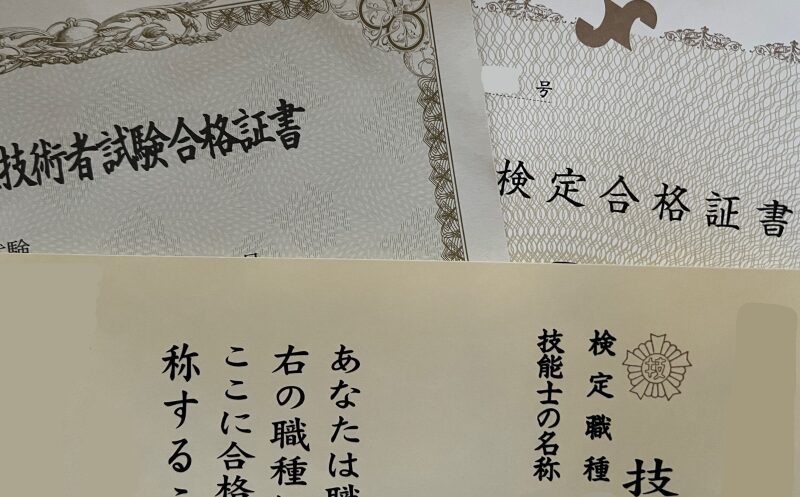 技術者試験合格証書
試験
号
検定合格証書
技
検定職種
技能士の名称
あなたは職
右の職種
ここに合格
称する
技